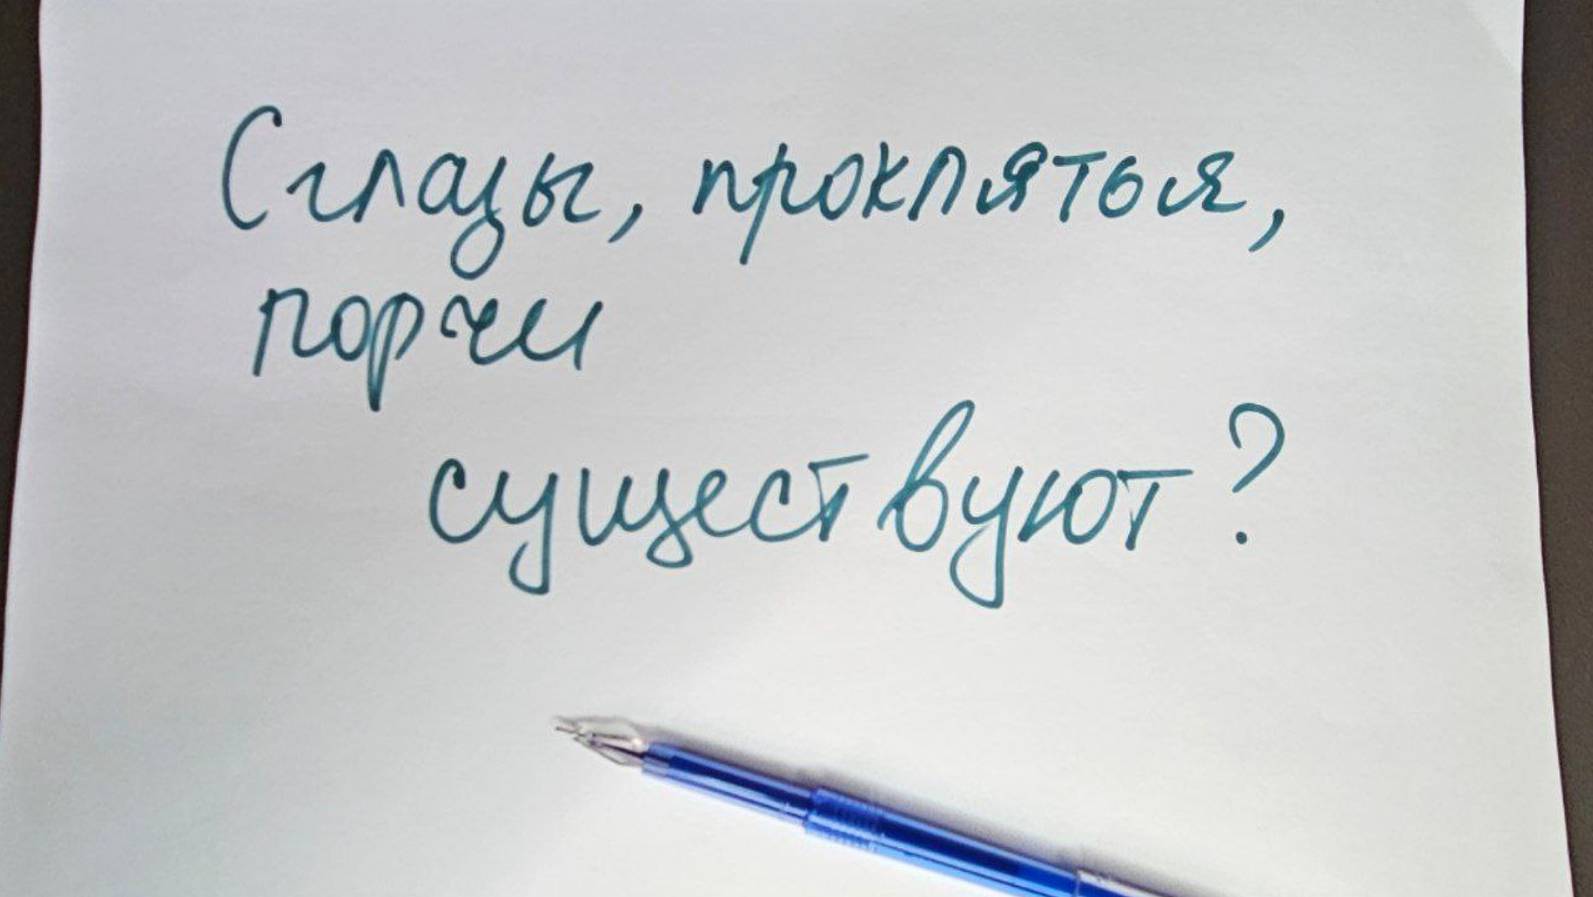 Сглазы, проклятья,
порчи
существуют?